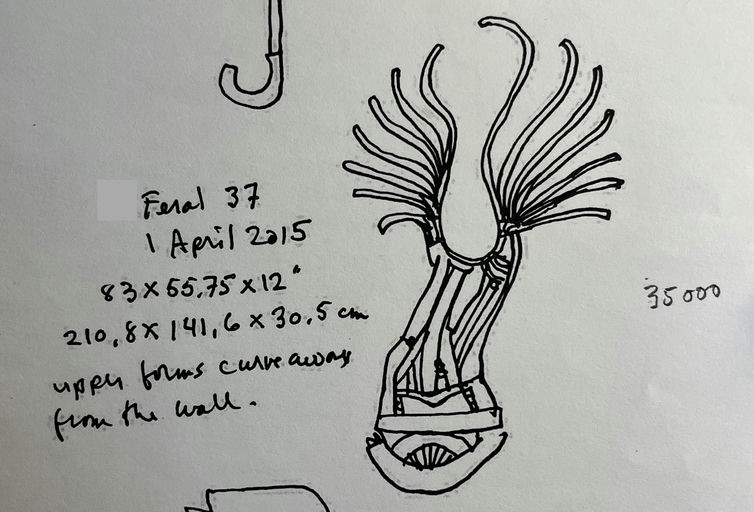 Feral 37
1 April 2015
83 x 55.75 x 12"
210,8 x 141,6 x 30.5 cm
upper forms curve away
from the wall.
35000